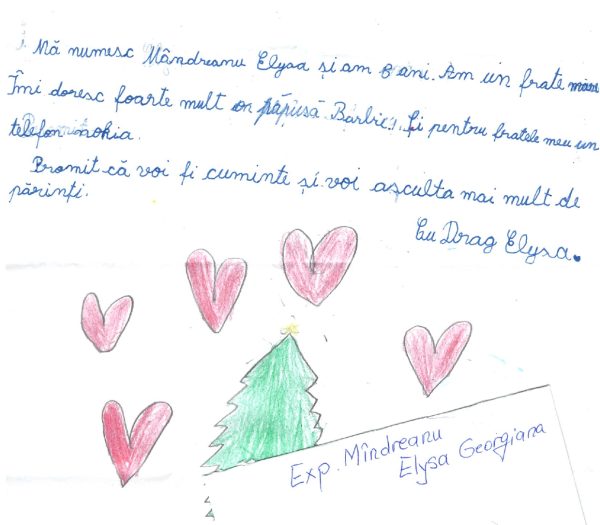 Mă numesc Mândreanu Elysa și am 8 ani. Am un frate
Îmi doresc foarte mult o păpușă Barbie. Și pentru fratele meu un
telefon nokia.
Promit că voi fi cuminte și voi asculta mai mult de
părinți.
Cu Drag Elysa.
Exp. Mîndreanu
Elysa Georgiana